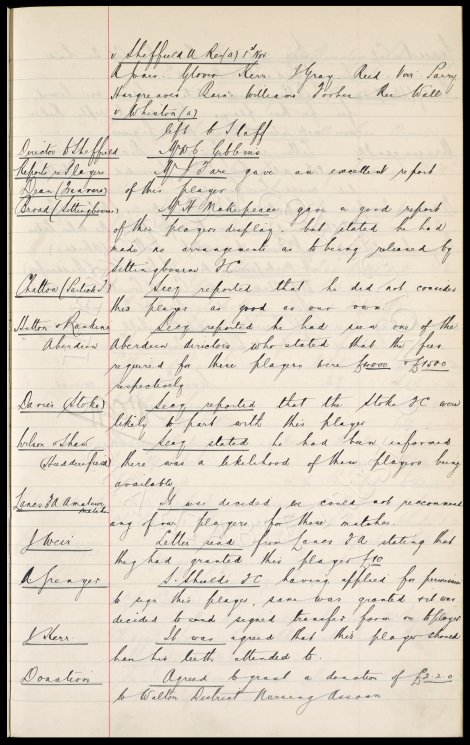 v Sheffield U Res(a) 1st Nov.
A Jones. Glover Kerr. J Gray. Reid. Parry
Hargreaves Bain Williams Forbes Wall
v Whiston (a)
left to Staff
Director to Sheffield Mr W C Gibbins
Reports re Players Mr J Fare gave an excellent report
Dean (Tranmere) of this player
Broad (Sittingbourne) Mr H Makepeace gave a good report
of this players display, but stated he had
made no arrangements as to being released by
Sittingbourne F.C
Chatton (Partick T) Secy reported that he did not consider
this player as good as our own.
Hutton & Rankine Secy reported he had seen one of the
Aberdeen Aberdeen directors who stated that the fees
required for these players were £4000 & £1500
respectively
Davies (Stoke) Secy reported that the Stoke FC were
likely to part with this player
Wilson & Shaw Secy stated he had been informed
(Huddersfield) there was a likelihood of these players being
available
Lancs FA Amateur It was decided we could not recommend
matches any of our players for these matches.
J Weir Letter read from Lancs F A stating that
they had granted this player £10
A Grenyer S. Shields FC having applied for permission
to sign this player, same was granted & it was
decided to send signed transfer form on to player
J Kerr. It was agreed that this player should
have his teeth attended to.
Donation Agreed to grant a donation of £2.2.0
to Walton District Nursing Assocn